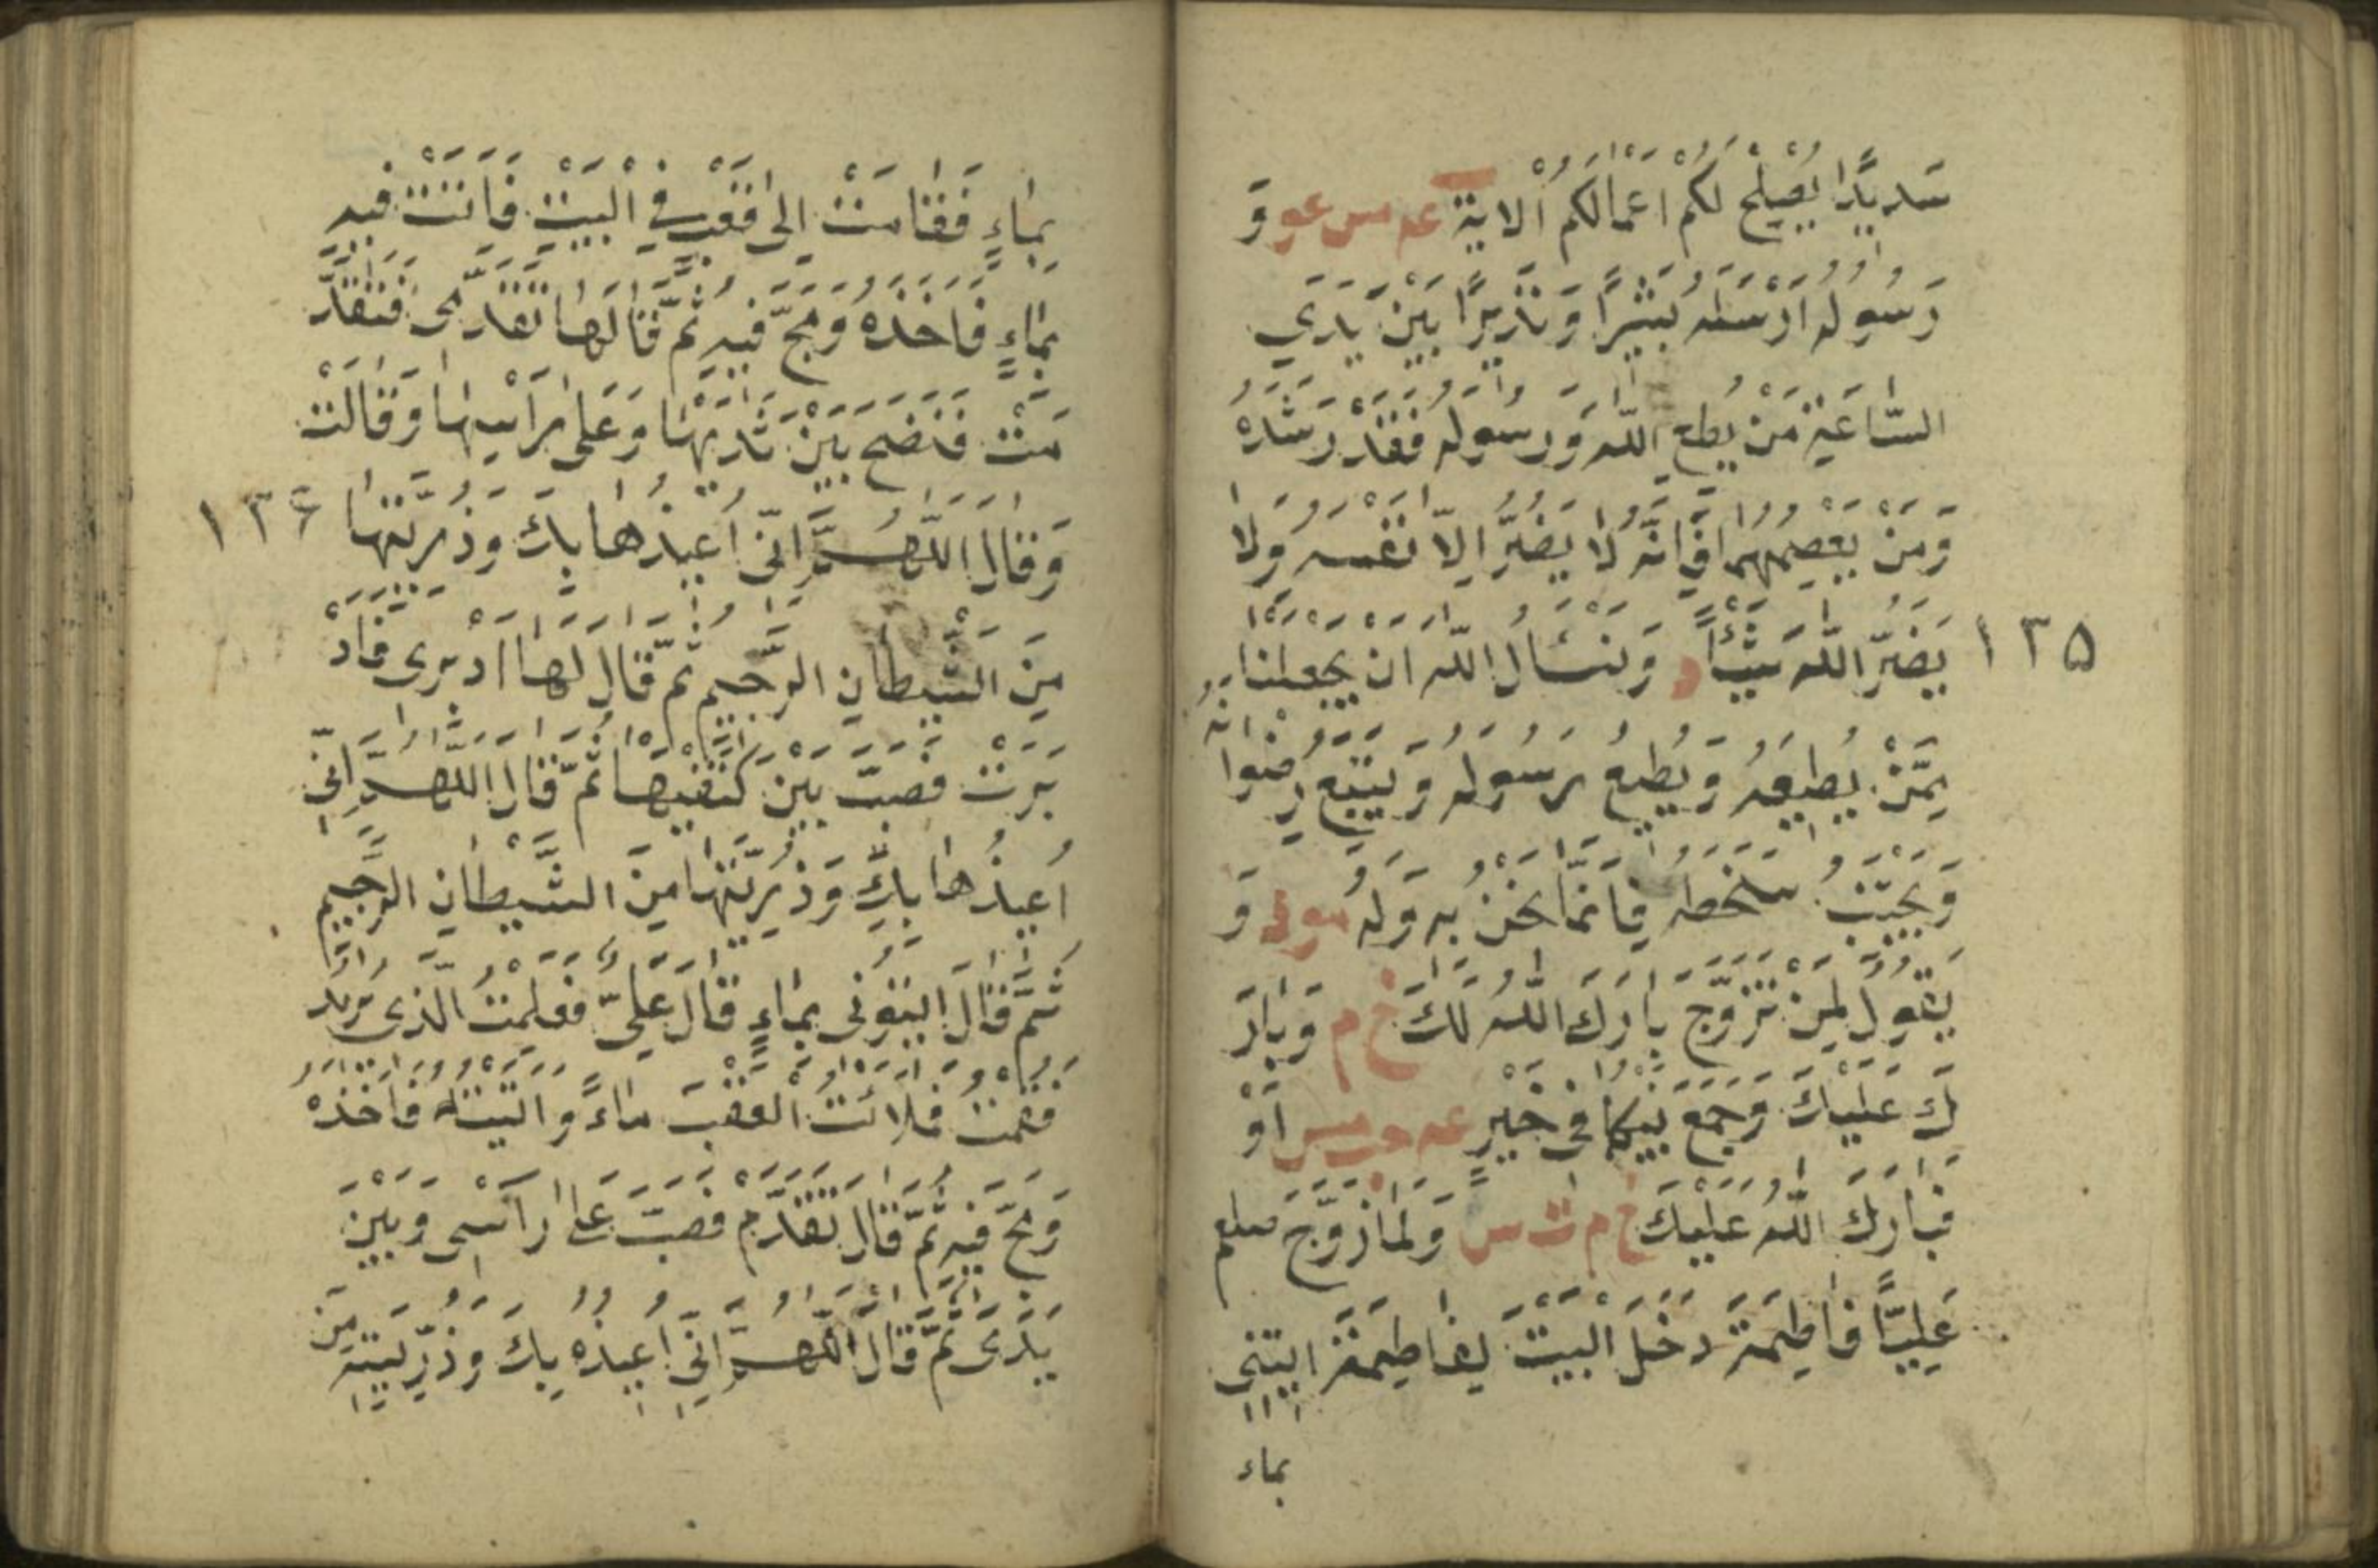 سَدِيدًا يُصْلِحْ لَكُمْ اَعْمَالَكُمْ اَلْاٰيَةَ عه مس عو وَ
رَسُولُهُ اَرْسَلَهُ بَشِيرًا وَنَذِيرًا بَيْنَ يَدَيِ
السَّاعَةِ مَنْ يُطِعِ اللّٰهَ وَرَسُولَهُ فَقَدْ رَشَدَ
وَمَنْ يَعْصِهِمَا فَاِنَّهُ لَا يَضُرُّ اِلَّا نَفْسَهُ وَلَا
١٣٥
يَضُرُّ اللّٰهَ شَيْئًا د وَنَسْـَٔالُ اللّٰهَ اَنْ يَجْعَلَنَا
مِمَّنْ يُطِيعُهُ وَيُطِيعُ رَسُولَهُ وَيَتَّبِعُ رِضْوَا نَهُ
وَيَجْتَنِبُ سَخَطَهُ فَاِنَّمَا نَحْنُ بِهِ وَلَهُ مو د وَ
يَقُولُ لِمَنْ تَزَوَّجَ بَارَكَ اللّٰهُ لَكَ خ م وَبَارَ
كَ عَلَيْكَ وَجَمَعَ بَيْنَكُمَا فِي خَيْرٍ عه حب مس اَوْ
فَبَارَكَ اللّٰهُ عَلَيْكَ خ م ت س وَلَمَّا زَوَّجَ صلعم
عَلِيًّا فَاطِمَةَ دَخَلَ الْبَيْتَ لِفَاطِمَةَ ايتِنِي
بماء
بِمَاءٍ فَقَامَتْ اِلَى قَعْبٍ فِي الْبَيْتِ فَاَتَتْ فِيهِ
بِمَاءٍ فَاَخَذَهُ وَمَجَّ فِيهِ ثُمَّ قَالَ لَهَا تَقَدَّمِي فَتَقَدَّ
مَتْ فَنَضَحَ بَيْنَ ثَدْيَيْهَا وَعَلَى رَاْسِهَا وَقَالَتْ
وَقَالَ اَللّٰهُمَّ اِنِّي اُعِيذُهَا بِكَ وَذُرِّيَّتَهَا
١٣٦
مِنَ الشَّيْطَانِ الرَّجِيمِ ثُمَّ قَالَ لَهَا اَدْبِرِى فَاَدْ
بَرَتْ فَصَبَّ بَيْنَ كَتِفَيْهَا ثُمَّ قَالَ اللّٰهُمَّ اِنِّي
اُعِيذُهَا بِكَ وَذُرِّيَّتَهَا مِنَ الشَّيْطَانِ الرَّجِيمِ
ثُمَّ قَالَ ايتُونِى بِمَاءٍ قَالَ عَلِيٌّ فَعَلِمْتُ الَّذِى يُرِيدُ
فَقُمْتُ فَمَلَاْتُ الْقَعْبَ مَاءً وَاَتَيْتُهُ فَاَخَذَهُ
وَمَجَّ فِيهِ ثُمَّ قَالَ تَقَدَّمْ فَصَبَّ عَلَى رَاْسِى وَبَيْنَ
يَدَىَّ ثُمَّ قَالَ اَللّٰهُمَّ اِنِّي اُعِيذُهُ بِكَ وَذُرِّيَّتَهُ مِنَ